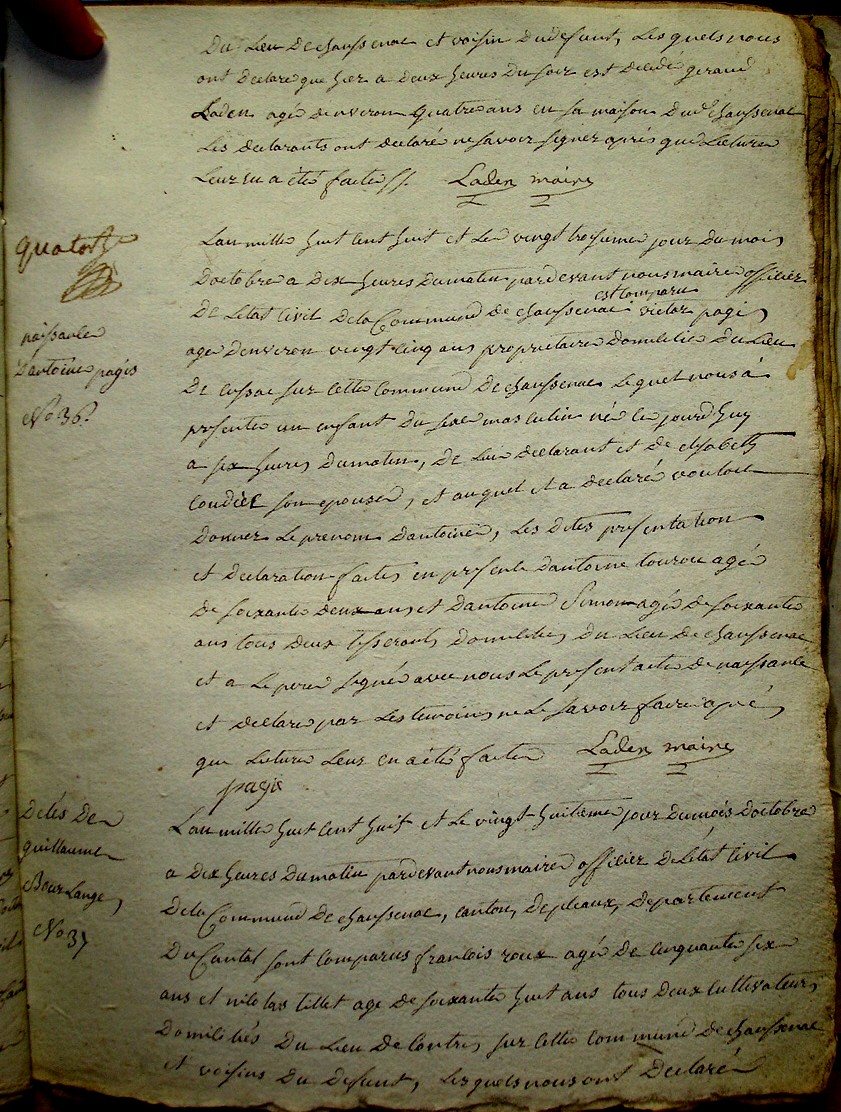 Du Lieu De chaussenac et voisin Dudefunt, Lesquels nous
ont Declaré que hier a Deux heures Du soir est Decédé geraud
Laden agé denveron quatre ans en sa maison Dud. chaussenac
Les Declarants ont declaré ne savoir signer aprés que Lecture
Leur en a été faite //. Laden maire
quatorze
naissance
Dantoine pagis
No 36.
Lan mille huit cent huit et Le vingt troisieme jour Du mois
Doctobre a Dix heures Dumatin pardevant nous maire officier
De Letat Civil Dela Commune De chaussenac est comparu victor pagis
age Denveron vingt cinq ans proprietaire Domicilié Du Lieu
De cussac sur Cette Commune De chaussenac Lequel nous á
presenté un enfant Du sexe masculin né ce jourdhuy
a six heures Dumatin, De Lui Declarant et De elsabeth
Coudier son epouse, et auquel il a declaré vouloir
Donner Le prenom Dantoine, Les Dites presentation
et Declaration faites en presence Dantoine tourou agé
De soixante deux ans et Dantoine Simon agé De soixante
ans tous Deux tisserants Domicilies Du Lieu De chaussenac
et a Le pere signé avec nous Le present acte De naissance
et declaré par Les temoins ne Le savoir faire aprés
que Lecture Leur en a été faite Laden maire
pagis
Decés De
guillaume
Bourlange,
No 37
Lan mille huit cent huit et Le vingt huitieme jour Dumois Doctobre
a Dix heures Dumatin pardevant nous maire officier De Letat Civil
Dela Commune De chaussenac, canton, De pleaux, Departement
Du Cantal sont Comparus francois roux agé De cinquante six
ans et nicolas tillet age De soixante huit ans tous Deux cultivateurs
Domiciliés Du Lieu De Contres sur Cette Commune De chaussenac
et voisins Du Defunt, Lesquels nous ont Declaré